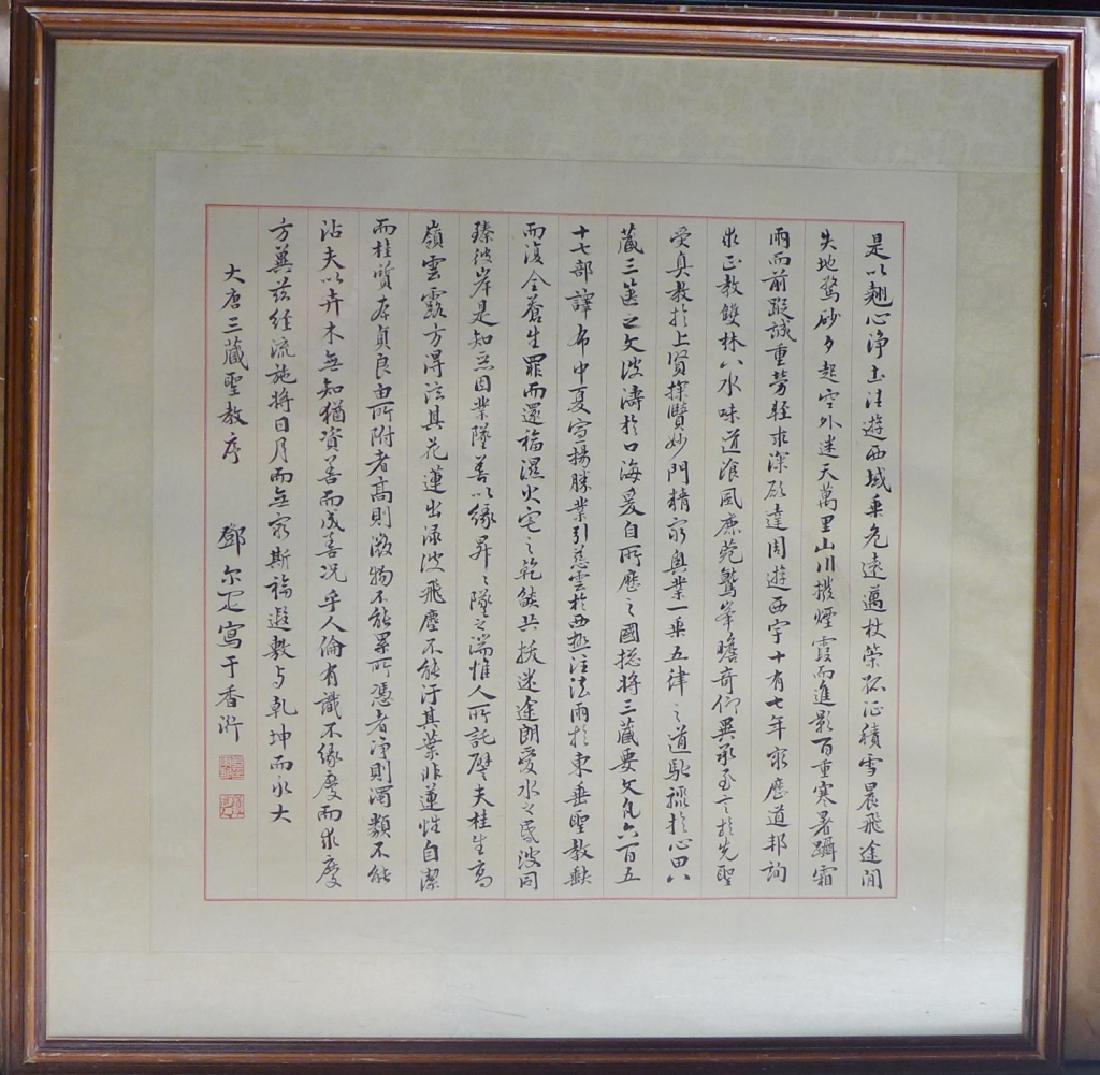 是以翹心淨土法遊西域乘危遠邁杖策孤征積雪晨飛途間
失地驚砂夕起空外迷天萬里山川撥煙霞而進影百重寒暑躡霜
雨而前蹤誠重勞輕求深願達周遊西宇十有七年窮歷道邦詢
求正教雙林八水味道飡風鹿菀鷲峯瞻奇仰異承至言於先聖
受真教於上賢探賾妙門精窮奧業一乘五律之道馳驟於心田八
藏三篋之文波濤於口海爰自所歷之國揔將三藏要文凡六百五
十七部譯布中夏宣揚勝業引慈雲於西極注法雨於東垂聖教缺
而復全蒼生罪而還福濕火宅之乾燄共拔迷途朗愛水之昏波同
臻彼岸是知惡因業墜善以緣昇〻墜之端惟人所託譬夫桂生高
嶺雲露方得泫其花蓮出淥波飛塵不能汙其葉非蓮性自潔
而桂質本貞良由所附者高則微物不能累所憑者淨則濁類不能
沾夫以卉木無知猶資善而成善況乎人倫有識不緣慶而求慶
方冀茲經流施將日月而無窮斯福遐敷與乾坤而永大
大唐三藏聖教序 鄧尔疋寫于香